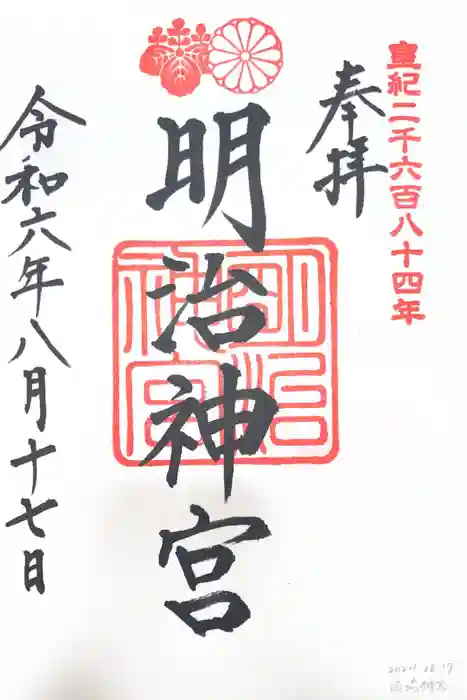 皇紀二千六百八十四年
奉拝
明治神宮
明治神宮
令和六年八月十七日